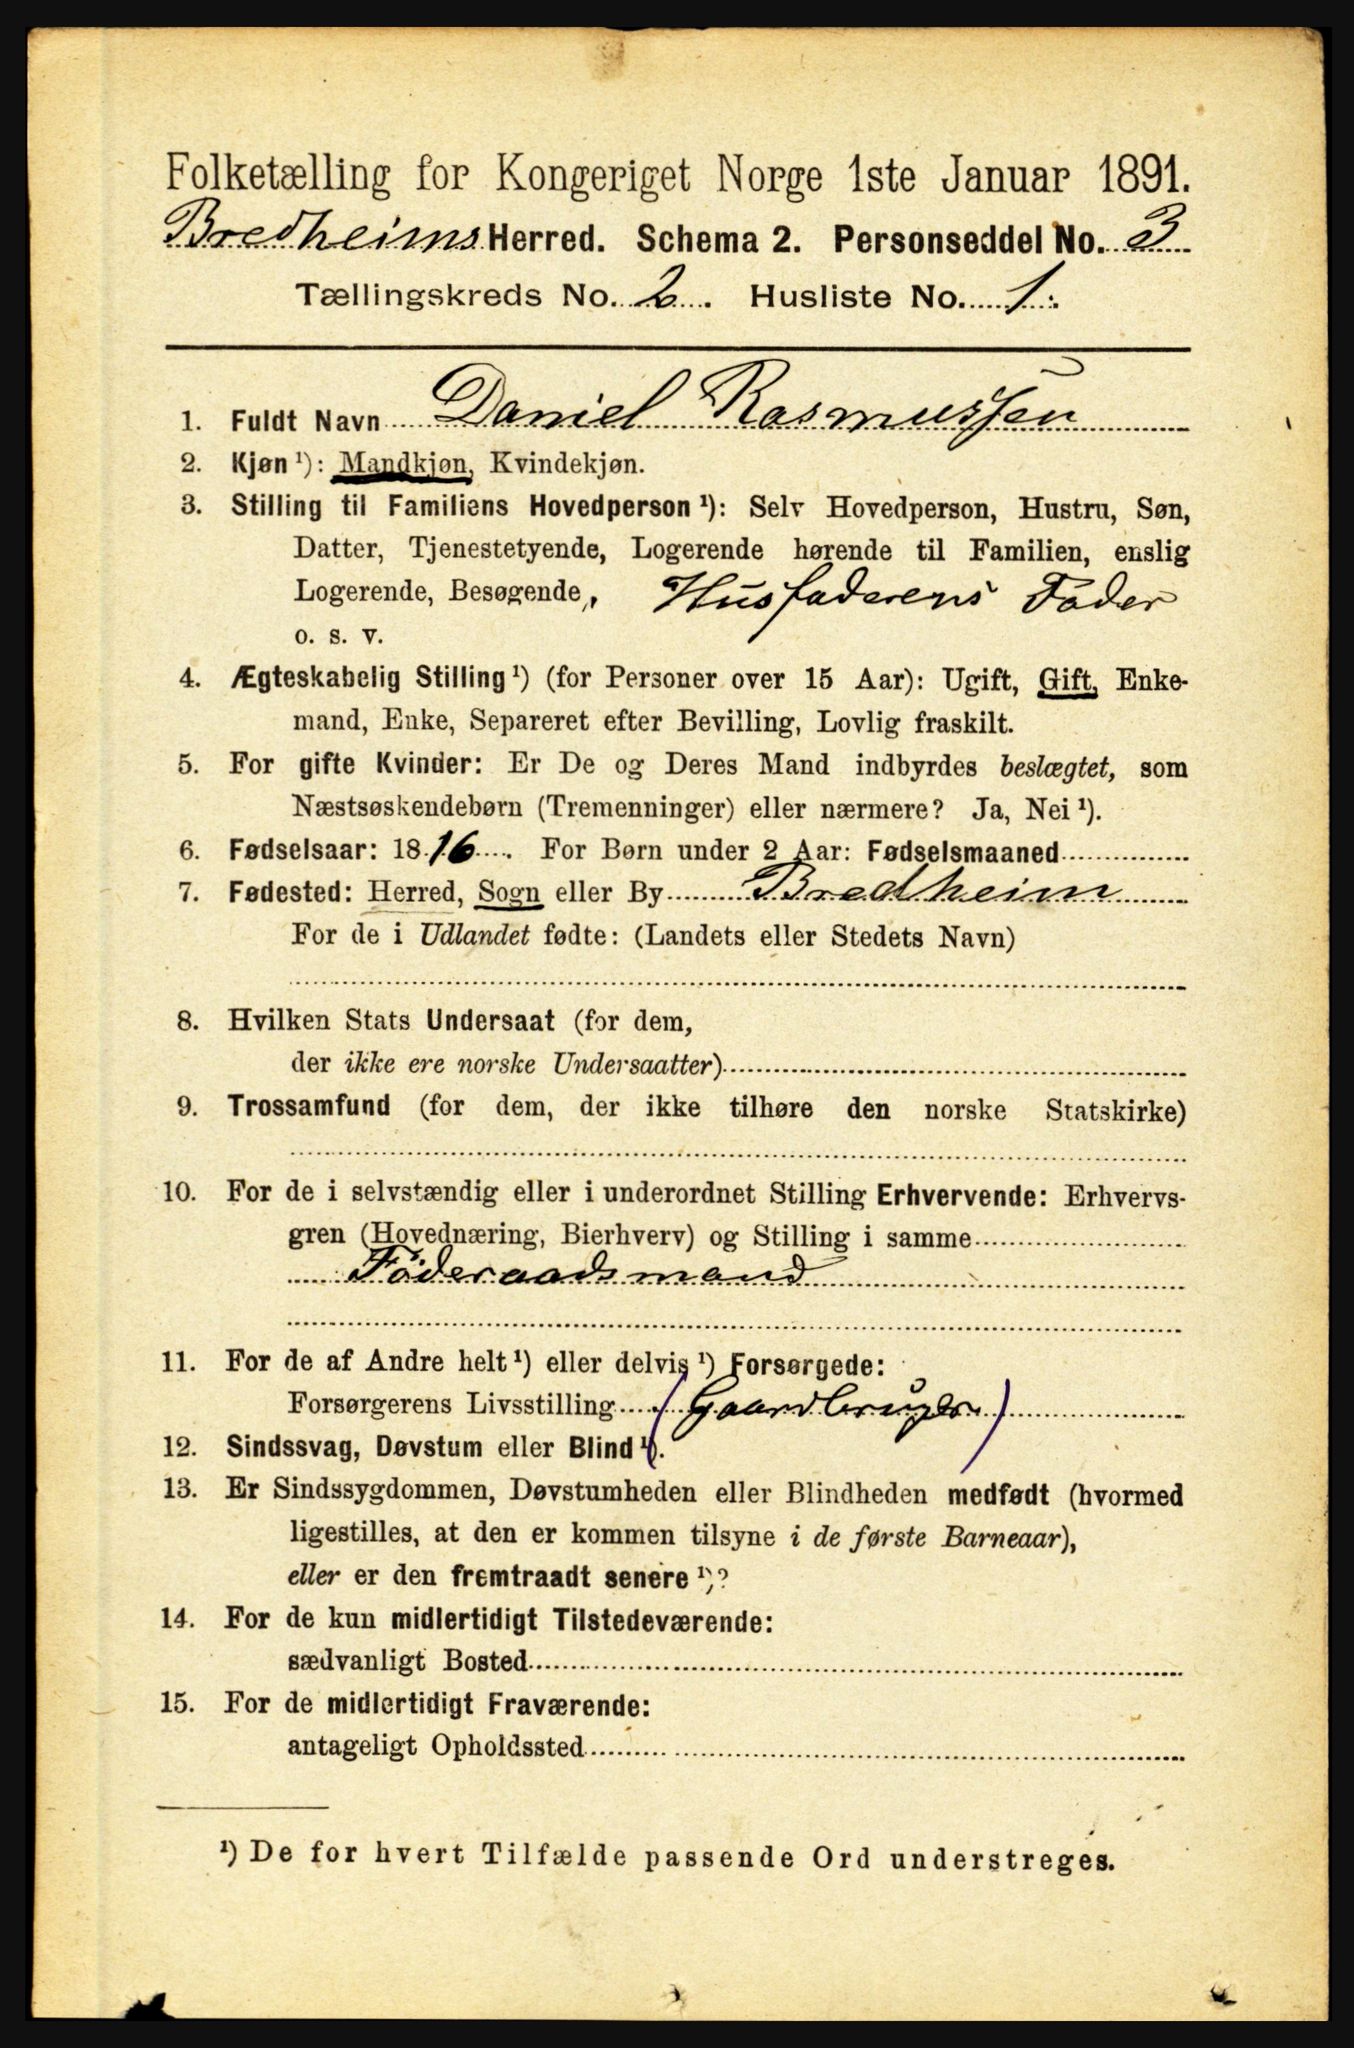 Folketælling for Kongeriget Norge 1ste Januar 1891.
Bredheims Herred. Schema 2. Personseddel No. 3
Tællingskreds No. 2. Husliste No. 1.
1. Fuldt Navn Daniel Rasmussen
2. Kjøn ¹): Mandkjøn, Kvindekjøn.
3. Stilling til Familiens Hovedperson ¹): Selv Hovedperson, Hustru, Søn,
Datter, Tjenestetyende, Logerende hørende til Familien, enslig
Logerende, Besøgende, Husfaderens Fader
o. s. v.
4. Ægteskabelig Stilling ¹) (for Personer over 15 Aar): Ugift, Gift, Enke-
mand, Enke, Separeret efter Bevilling, Lovlig fraskilt.
5. For gifte Kvinder: Er De og Deres Mand indbyrdes beslægtet, som
Næstsøskendebørn (Tremenninger) eller nærmere? Ja, Nei ¹).
6. Fødselsaar: 1816. For Børn under 2 Aar: Fødselsmaaned
7. Fødested: Herred, Sogn eller By Bredheim
For de i Udlandet fødte: (Landets eller Stedets Navn)
8. Hvilken Stats Undersaat (for dem,
der ikke ere norske Undersaatter)
9. Trossamfund (for dem, der ikke tilhøre den norske Statskirke)
10. For de i selvstændig eller i underordnet Stilling Erhvervende: Erhvervs-
gren (Hovednæring, Bierhverv) og Stilling i samme
Föderaadsmand
11. For de af Andre helt ¹) eller delvis ¹) Forsørgede:
Forsørgerens Livsstilling (Gaardbruger)
12. Sindssvag, Døvstum eller Blind ¹).
13. Er Sindssygdommen, Døvstumheden eller Blindheden medfødt (hvormed
ligestilles, at den er kommen tilsyne i de første Barneaar),
eller er den fremtraadt senere ¹)?
14. For de kun midlertidigt Tilstedeværende:
sædvanligt Bosted
15. For de midlertidigt Fraværende:
antageligt Opholdssted
¹) De for hvert Tilfælde passende Ord understreges.